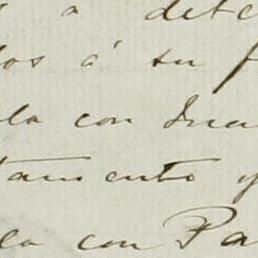 a dete
dos á su f
la con Jua
tamento y
la con Pa